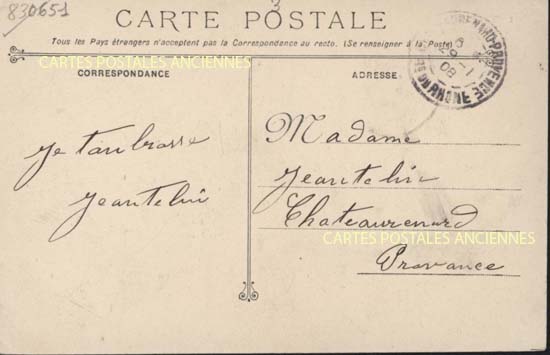 830651
3
CARTE POSTALE
Tous les Pays étrangers n'acceptent pas la Correspondance au recto. (Se renseigner à la Poste)
CARTES POSTALES ANCIENNES
CORRESPONDANCE
ADRESSE
Je tanbrasse
Jeantelin
Madame
Jeantelin
Chateaurenard
CARTES POSTALES ANCIENNES
Provance
RENARD-PROVENCE
29 -1
08
DU RHONE